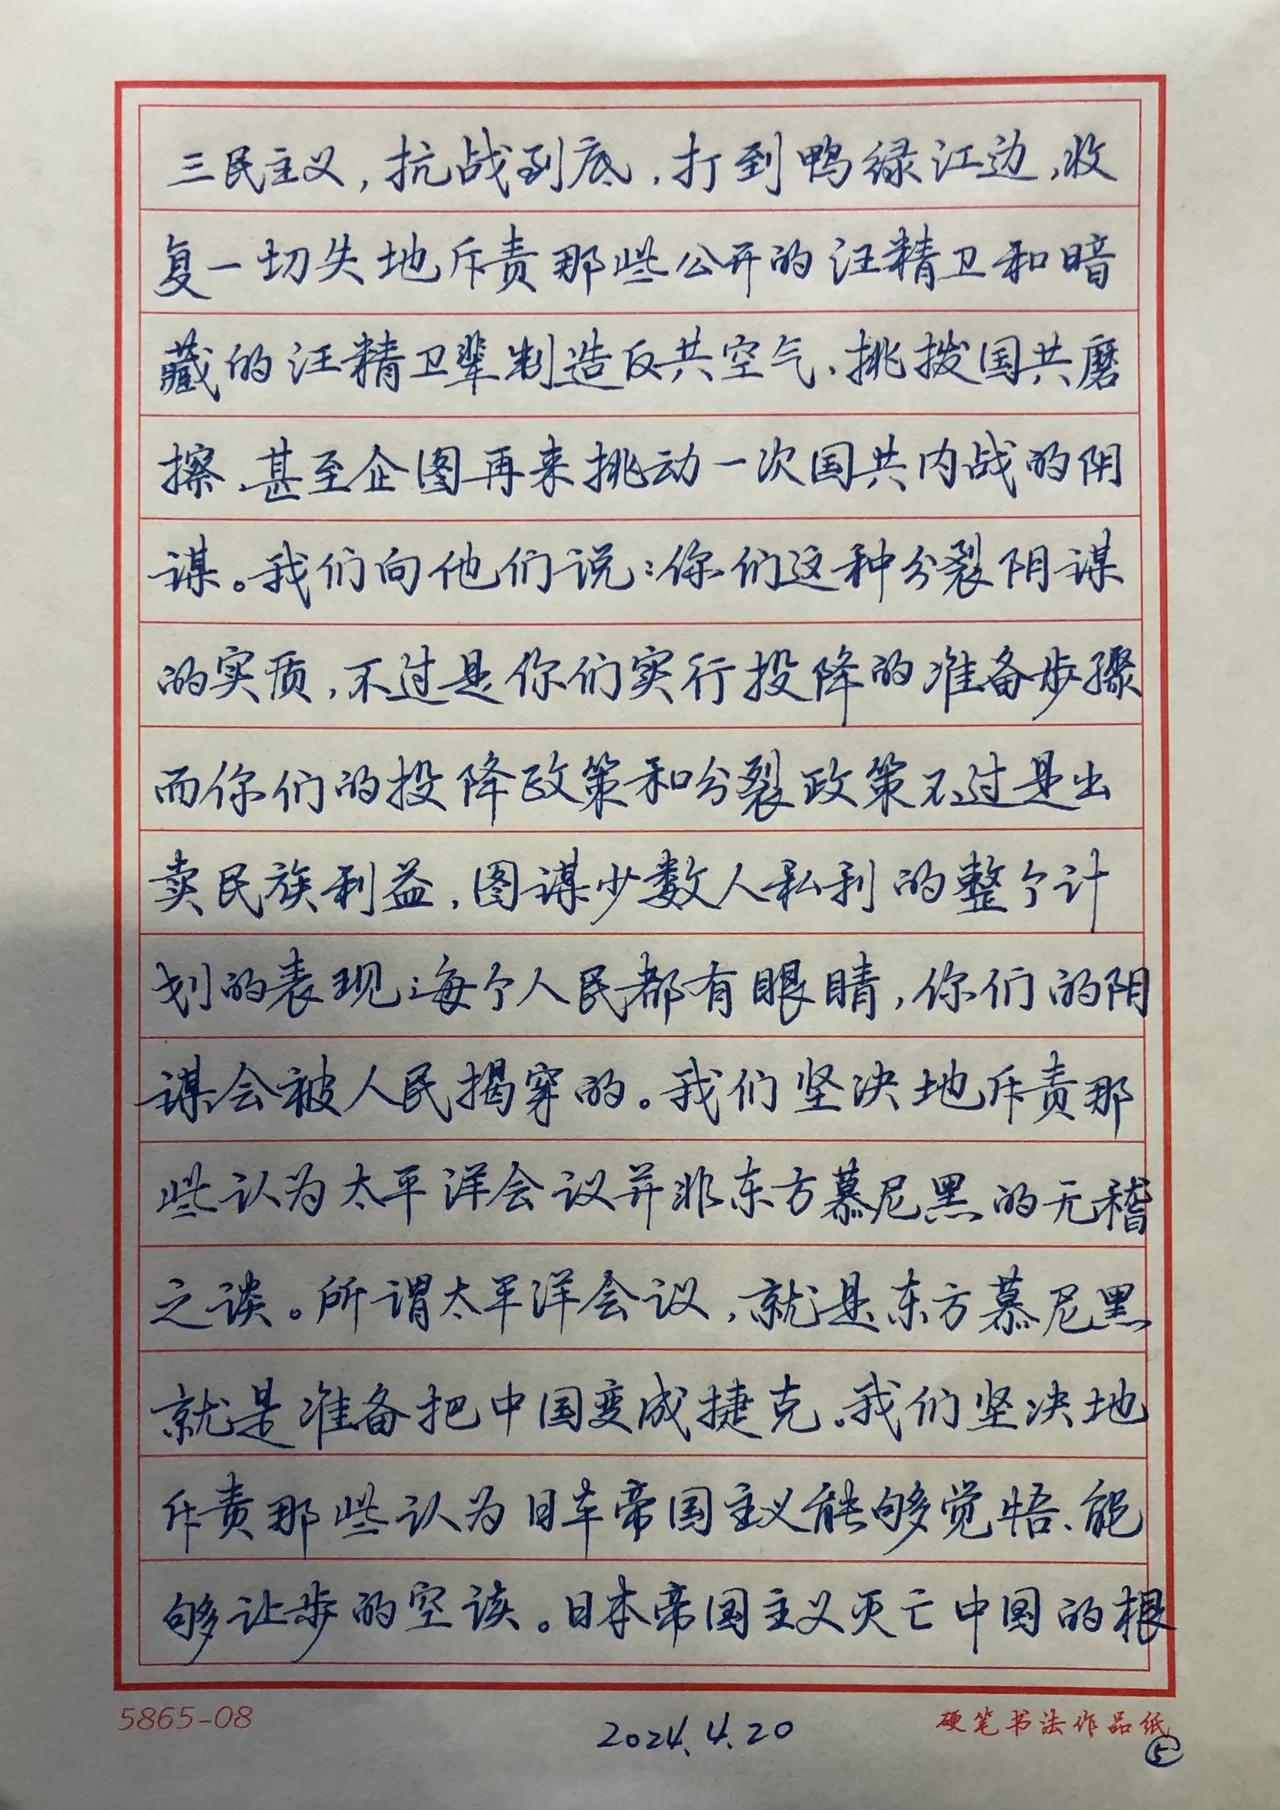 三民主义,抗战到底,打到鸭绿江边,收
复一切失地斥责那些公开的汪精卫和暗
藏的汪精卫辈制造反共空气、挑拨国共磨
擦、甚至企图再来挑动一次国共内战的阴
谋。我们向他们说:你们这种分裂阴谋
的实质,不过是你们实行投降的准备步骤
而你们的投降政策和分裂政策不过是出
卖民族利益,图谋少数人私利的整个计
划的表现;每个人民都有眼睛,你们的阴
谋会被人民揭穿的。我们坚决地斥责那
些认为太平洋会议并非东方慕尼黑的无稽
之谈。所谓太平洋会议,就是东方慕尼黑
就是准备把中国变成捷克。我们坚决地
斥责那些认为日本帝国主义能够觉悟、能
够让步的空谈。日本帝国主义灭亡中国的根
5865-08
2024.4.20
硬笔书法作品纸
⑤